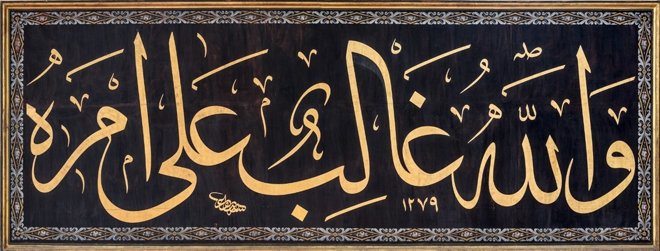 وَاللهُ غَالِبٌ عَلَى اَمْرِهِ
١٢٧٩